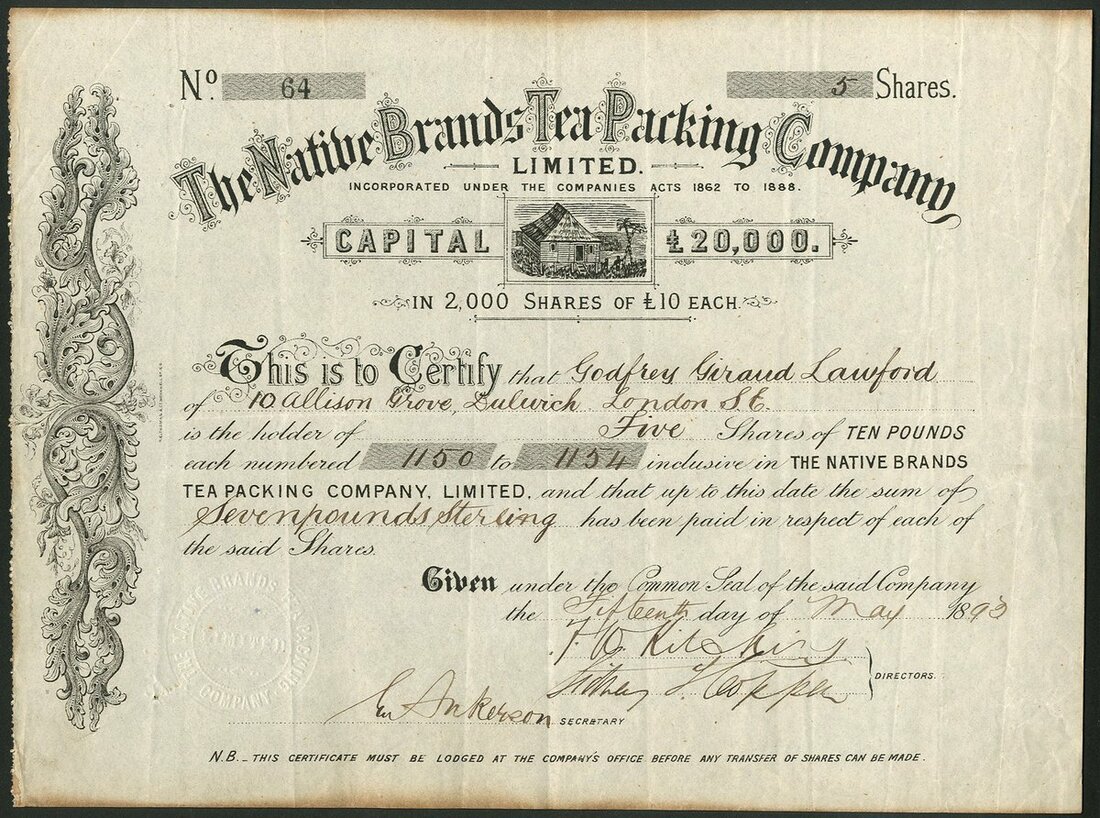 No. 64 5 Shares.
The Native Brands Tea Packing Company
LIMITED.
INCORPORATED UNDER THE COMPANIES ACTS 1862 TO 1888.
CAPITAL £20,000.
IN 2,000 SHARES OF £10 EACH.
This is to Certify that Godfrey Giraud Lawford
of 10 Allison Grove, Dulwich London S.E.
is the holder of Five Shares of TEN POUNDS
each numbered 1150 to 1154 inclusive in THE NATIVE BRANDS
TEA PACKING COMPANY, LIMITED, and that up to this date the sum of
Seven pounds Sterling has been paid in respect of each of
the said Shares.
Given under the Common Seal of the said Company
the Fifteenth day of May 1893
DIRECTORS.
Ankerson SECRETARY
THE NATIVE BRANDS TEA PACKING COMPANY
LIMITED
N.B. _ THIS CERTIFICATE MUST BE LODGED AT THE COMPANY'S OFFICE BEFORE ANY TRANSFER OF SHARES CAN BE MADE.